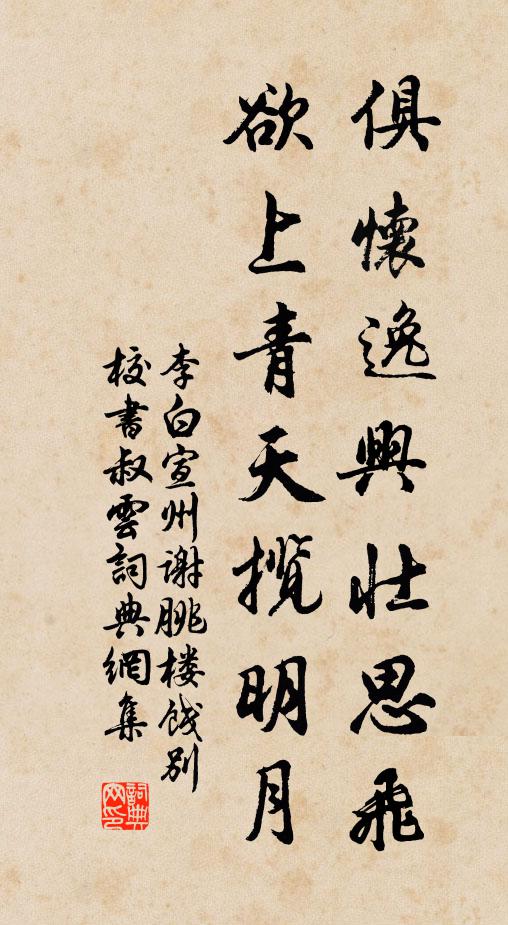 俱懷逸興壯思飛
欲上青天揽明月
李白宣州谢朓楼饯别
校書叔雲詞典網集
詞典网印